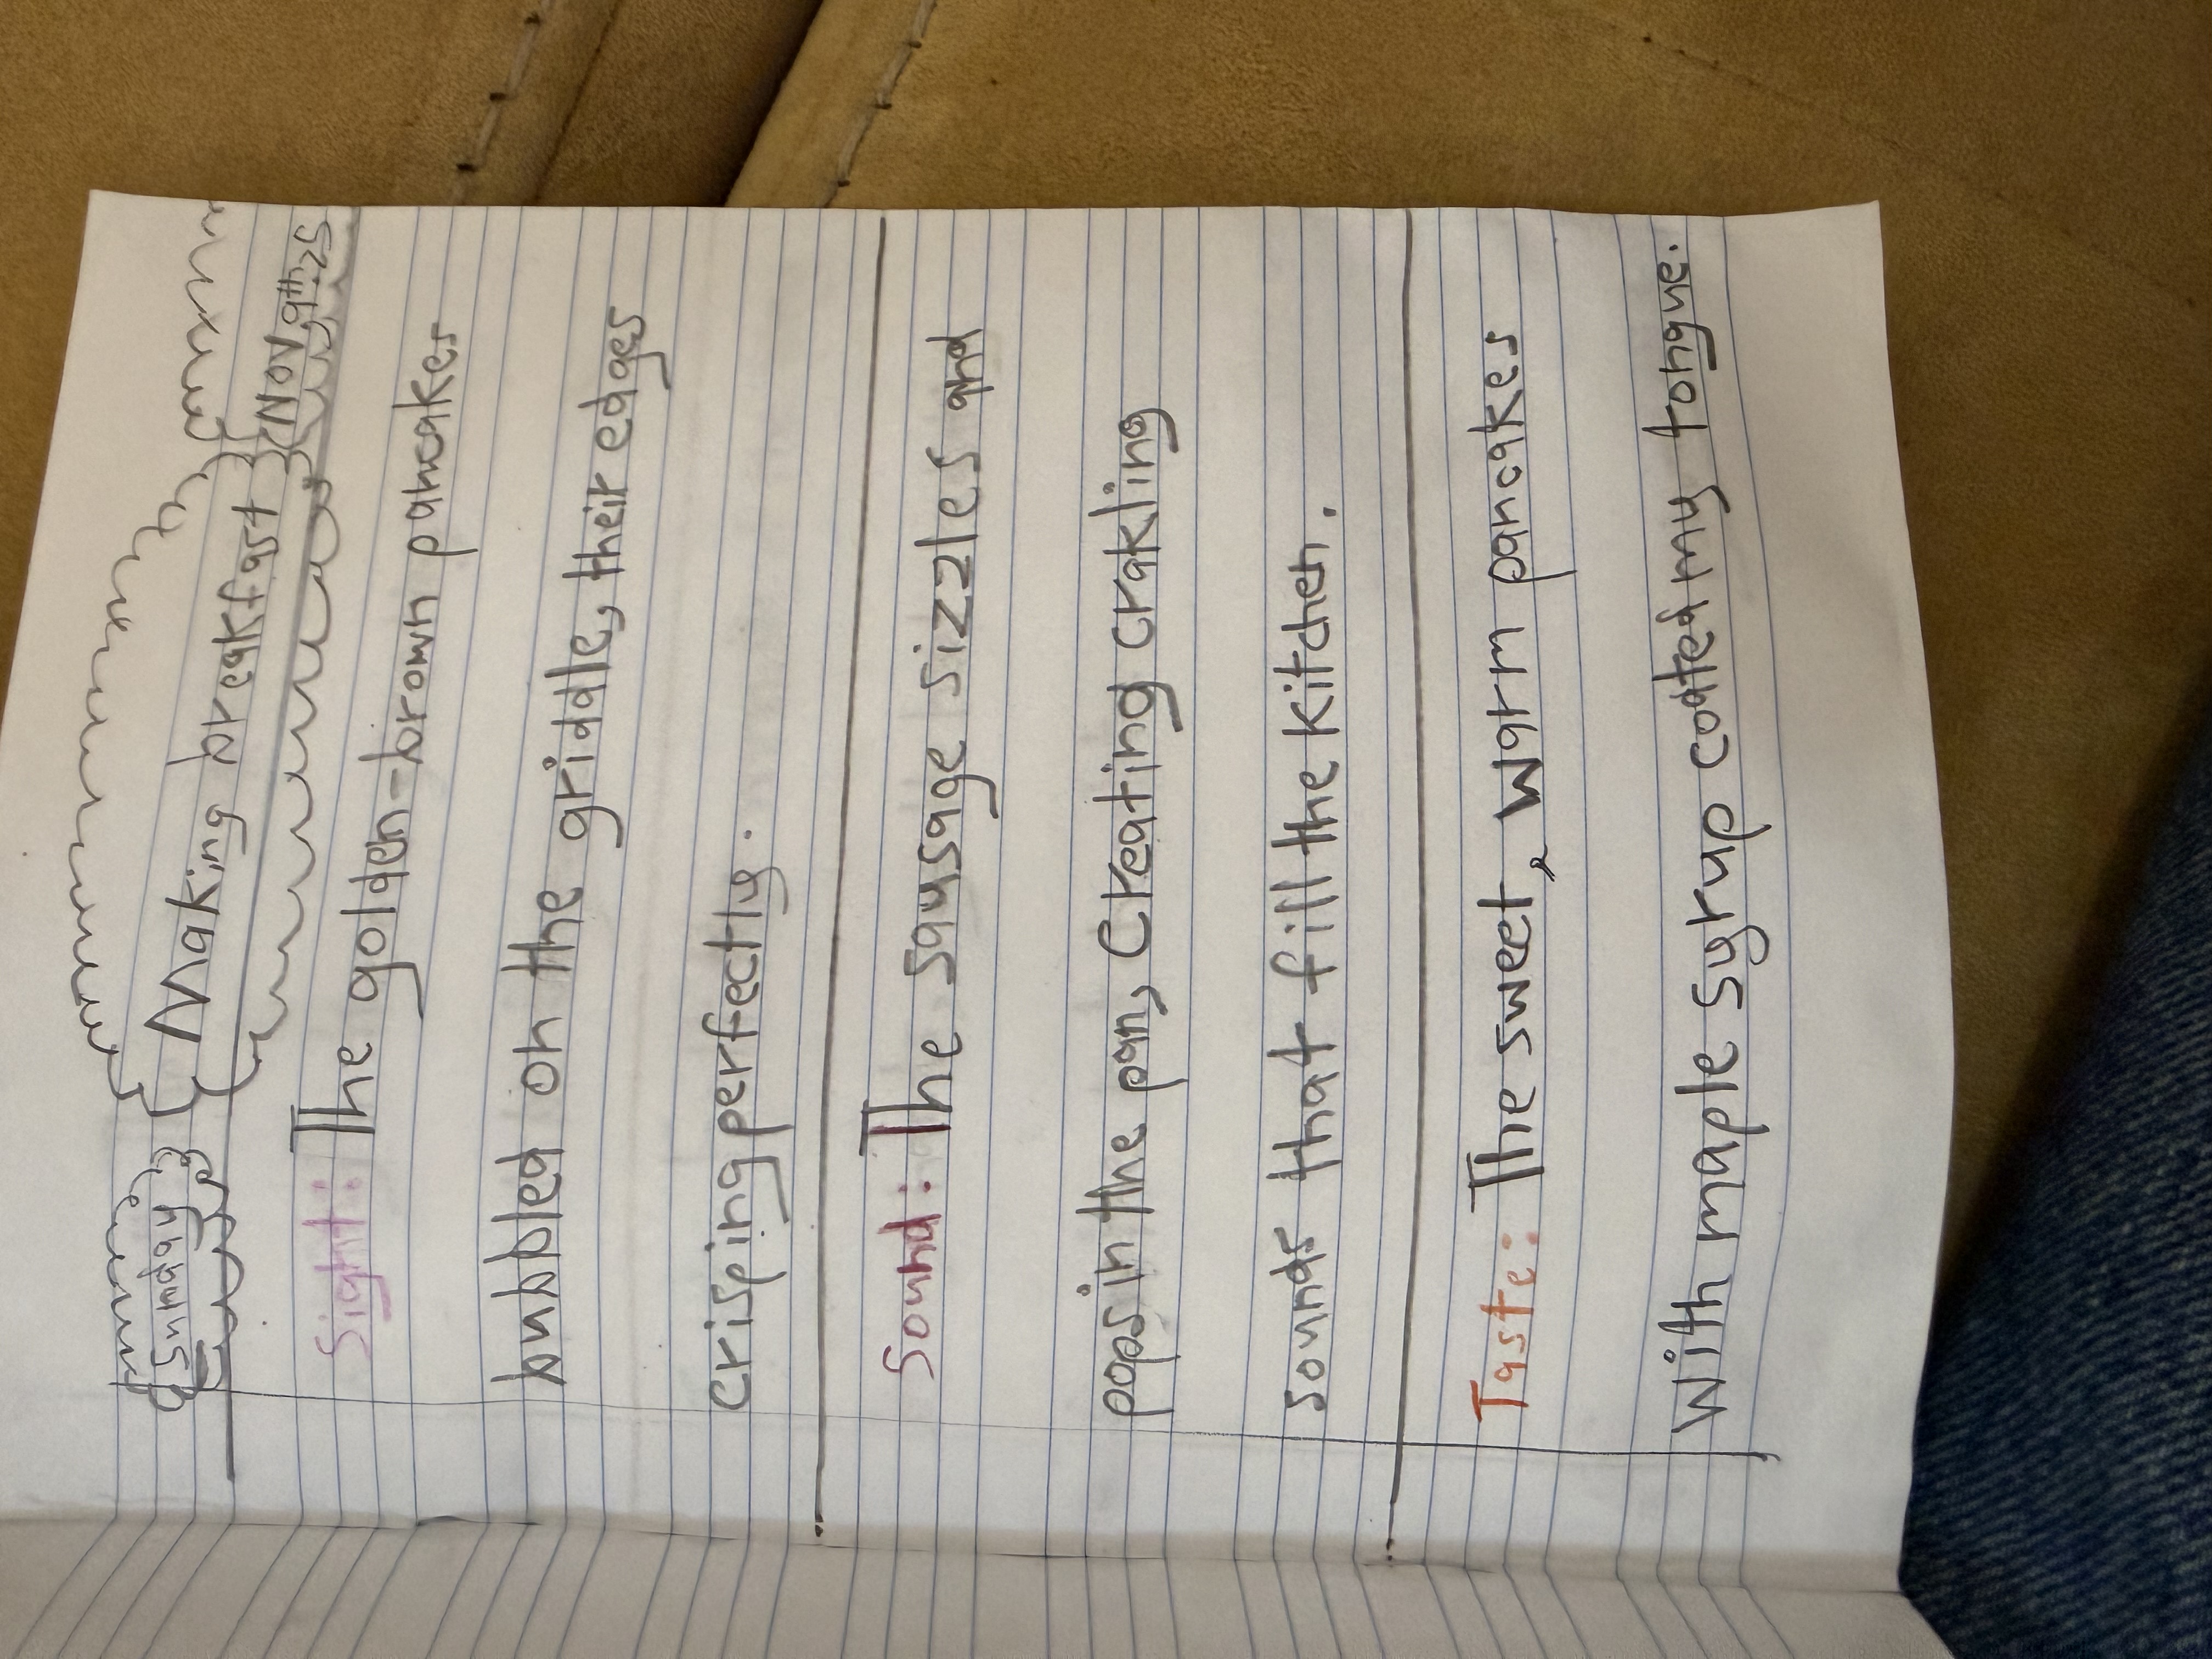 Sunday
Making breakfast
Nov, 9th, 25
Sight: The golden-brown pancakes
bubbled on the griddle, their edges
crisping perfectly.
Sound: The sausage sizzles and
pops in the pan, Creating crakling
sounds that fill the kitchen.
Taste: The sweet, warm pancakes
With maple syrup coated my tongue.